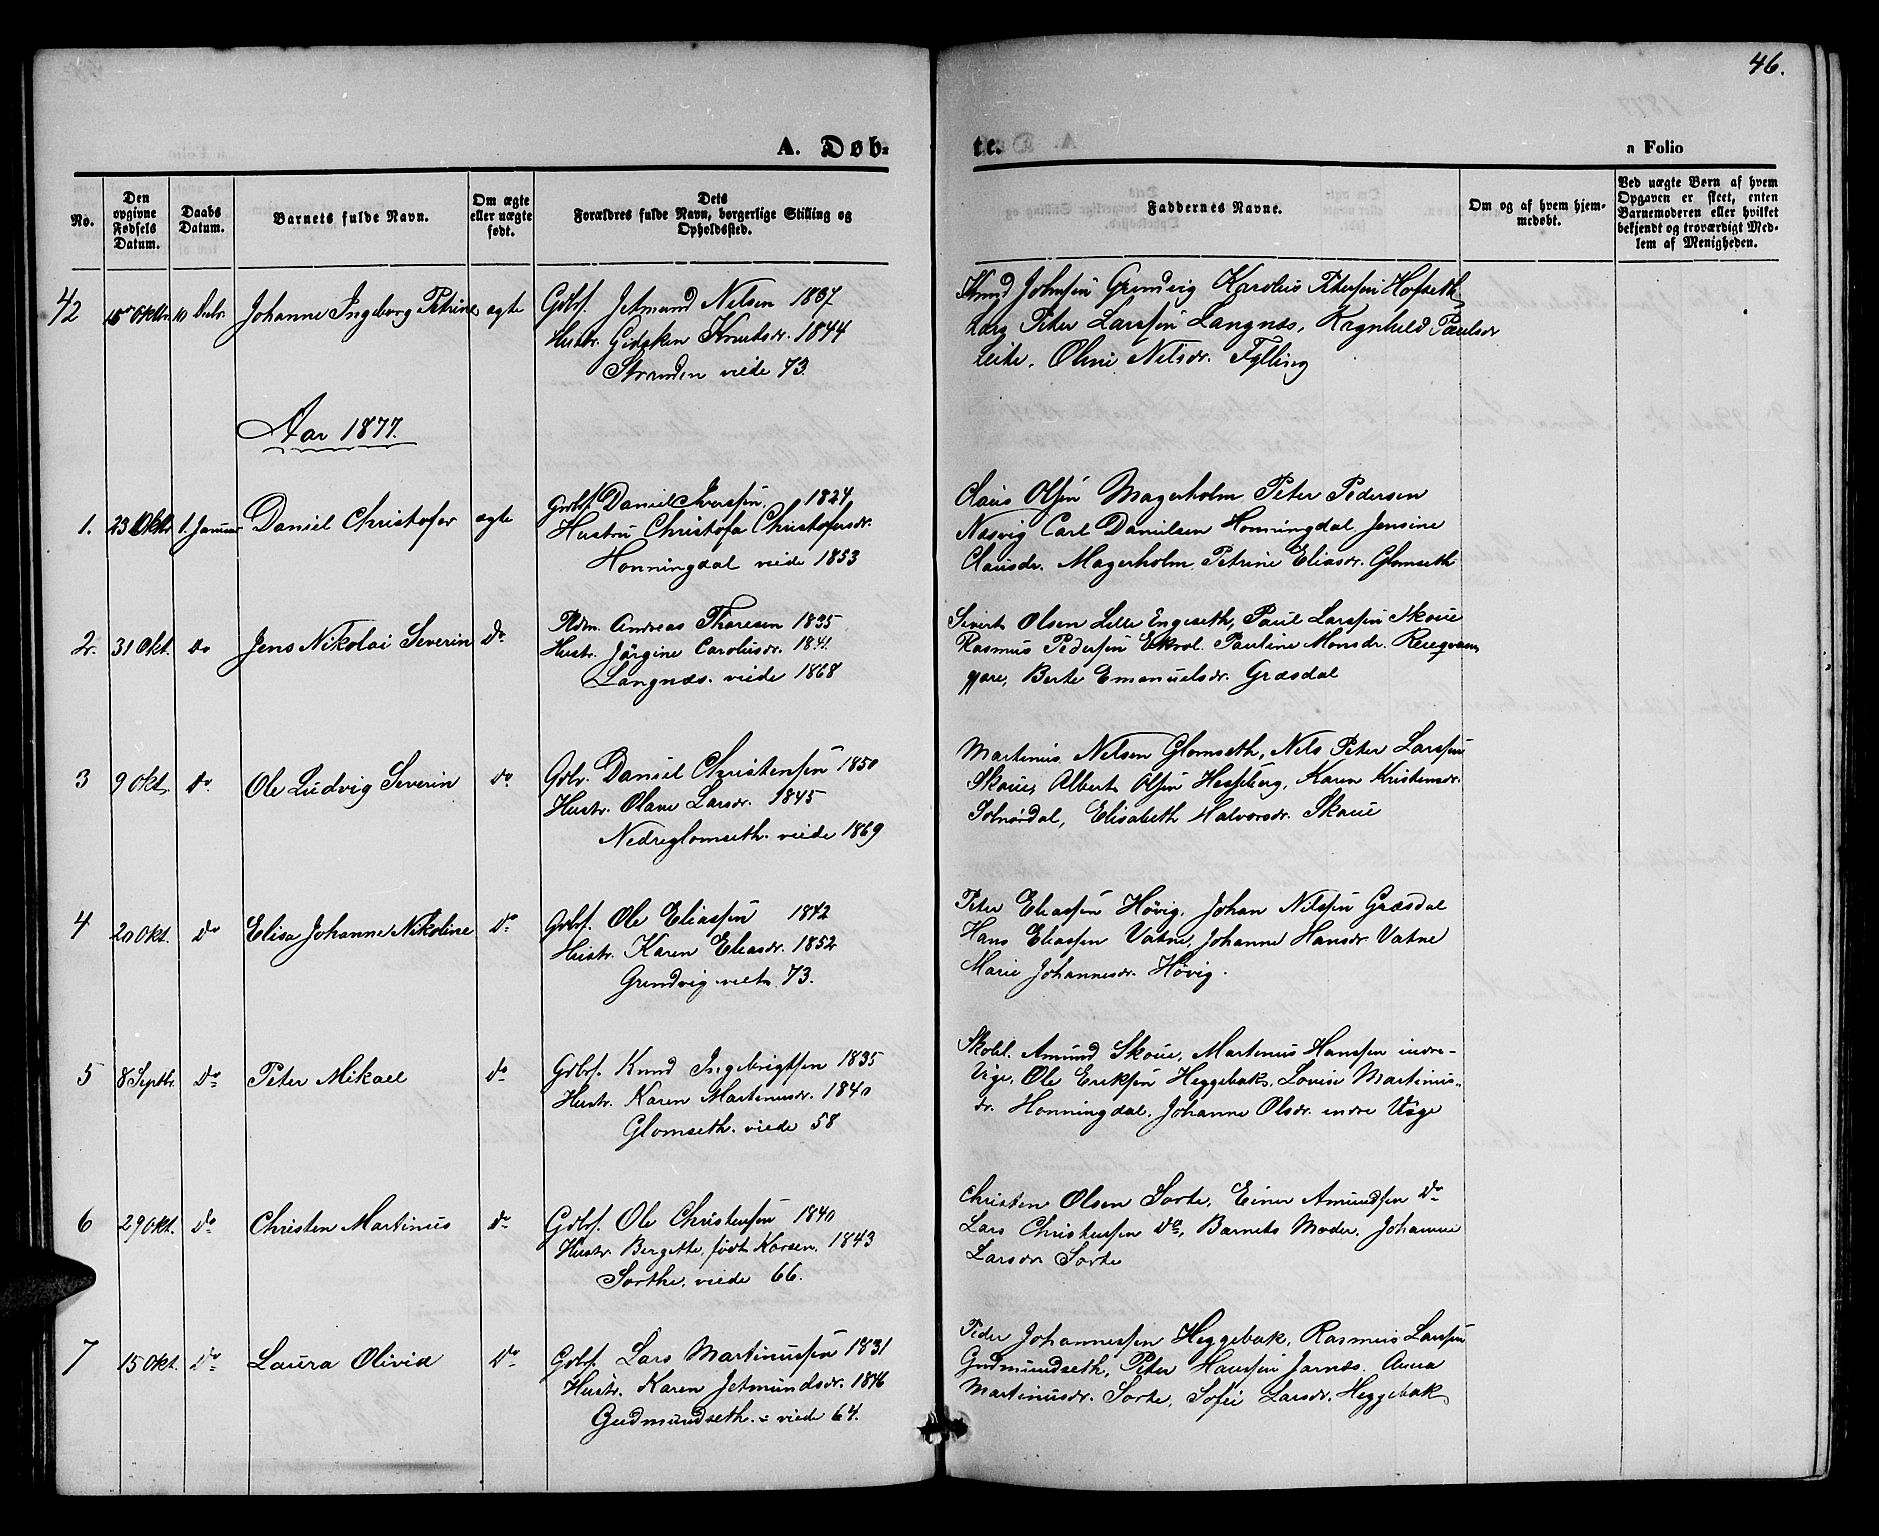 46.
A. Døb-
te.
a Folio
No.
Den opgivne Fødsels Datum.
Daabs Datum.
Barnets fulde Navn.
Om ægte eller uægte født.
Dets Forældres fulde Navn, borgerlige Stilling og Opholdssted.
Faddernes Navne.
Om og af hvem hjemmedøbt.
Ved uægte Børn af hvem Opgaven er skeet, enten Barnemoderen eller hvilket bekjendt og troværdigt Medlem af Menigheden.
42 Oktbr. 10 Decbr. Johanne Ingeborg Petrine ægte
Gdbr. Jetmund Nilsen 1837
Hustr. Gidsken Knutsdr. 1844
Stranden viede 73.
Knud Johnsen Grindvig Karolus Petersen Hofseth
Lars Peter Larssen Langnæs, Ragnhild Paulsdr
Leite. Oline Nilsdr. Fylling
Aar 1877.
1. 23 Okt. 1. Januar Daniel Christofer ægte
Gdbr. Daniel Iverssen 1824
Hustru Christofa Christofersdr.
Honningdal viede 1853
Claus Olsen Magerholm Peter Pedersen
Næsvig Carl Danielsen Honningdal Jensine
Clausdr. Magerholm Petrine Eliasdr. Glomseth
2. 31 Okt. do Jens Nikolai Severin do
Pldm. Andreas Thoresen 1835
Hustr. Jørgine Carolusdr. 1841
Langnæs. viede 1868
Sivert Olsen Lille Engeseth, Paul Larssen Skoue
Rasmus Pedersen Ekrol. Pauline Monsdr.
gjøre, Berte Emanuelsdr. Græsdal
3 9 Okt. do Ole Ludvig Severin do
Gdbr. Daniel Christensen 1850
Hustr. Olave Larsdr. 1845
Nedreglomseth. viede 1869
Martinus Nilsen Glomseth, Nils Peter Larssen
Skoue, Albert Olsen Hessberg, Karen Kristensdr.
Solnørdal, Elisabeth Halvorsdr. Skoue
4 20 Okt. do Elisa Johanne Nikoline do
Gdbr. Ole Eliassen 1842
Hustr. Karen Eliasdr. 1852
Grindvig viet 73.
Peter Eliassen Høvig, Johan Nilssen Græsdal
Hans Eliassen Vatne, Johanne Hansdr. Vatne
Marie Johannesdr. Høvig.
5 8 Septbr. do Peter Mikael do
Gdbr. Knud Ingebrigtsen 1835
Hustr. Karen Martinusdr. 1840
Glomseth. viede 58
Skoll. Amund Skoue, Martinus Hanssen indre-
Vige, Ole Eriksen Heggebak, Lovise Martinus-
dr. Honningdal, Johanne Olsdr. indre Vige
6 29 Okt. do Christen Martinus do
Gdbr. Ole Christensen 1840
Hustr. Bergette, født Korsen, 1843
Sorthe, viede 66.
Christen Olsen Sorte, Einer Amundsen do
Lars Christensen do, Barnets Moder, Johanne
Larsdr Sorte
7 15 Okt. do Laura Olivia do
Gdbr. Lars Martinussen 1831
Hustr. Karen Jetmundsdr. 1846
Gudmundseth. - viede 64.
Peder Johannessen Heggebak, Rasmus Larssen
Gudmundseth, Peter Hanssen Jarnæs, Anna
Martinusdr. Sorte, Sofie Larsdr. Heggebak